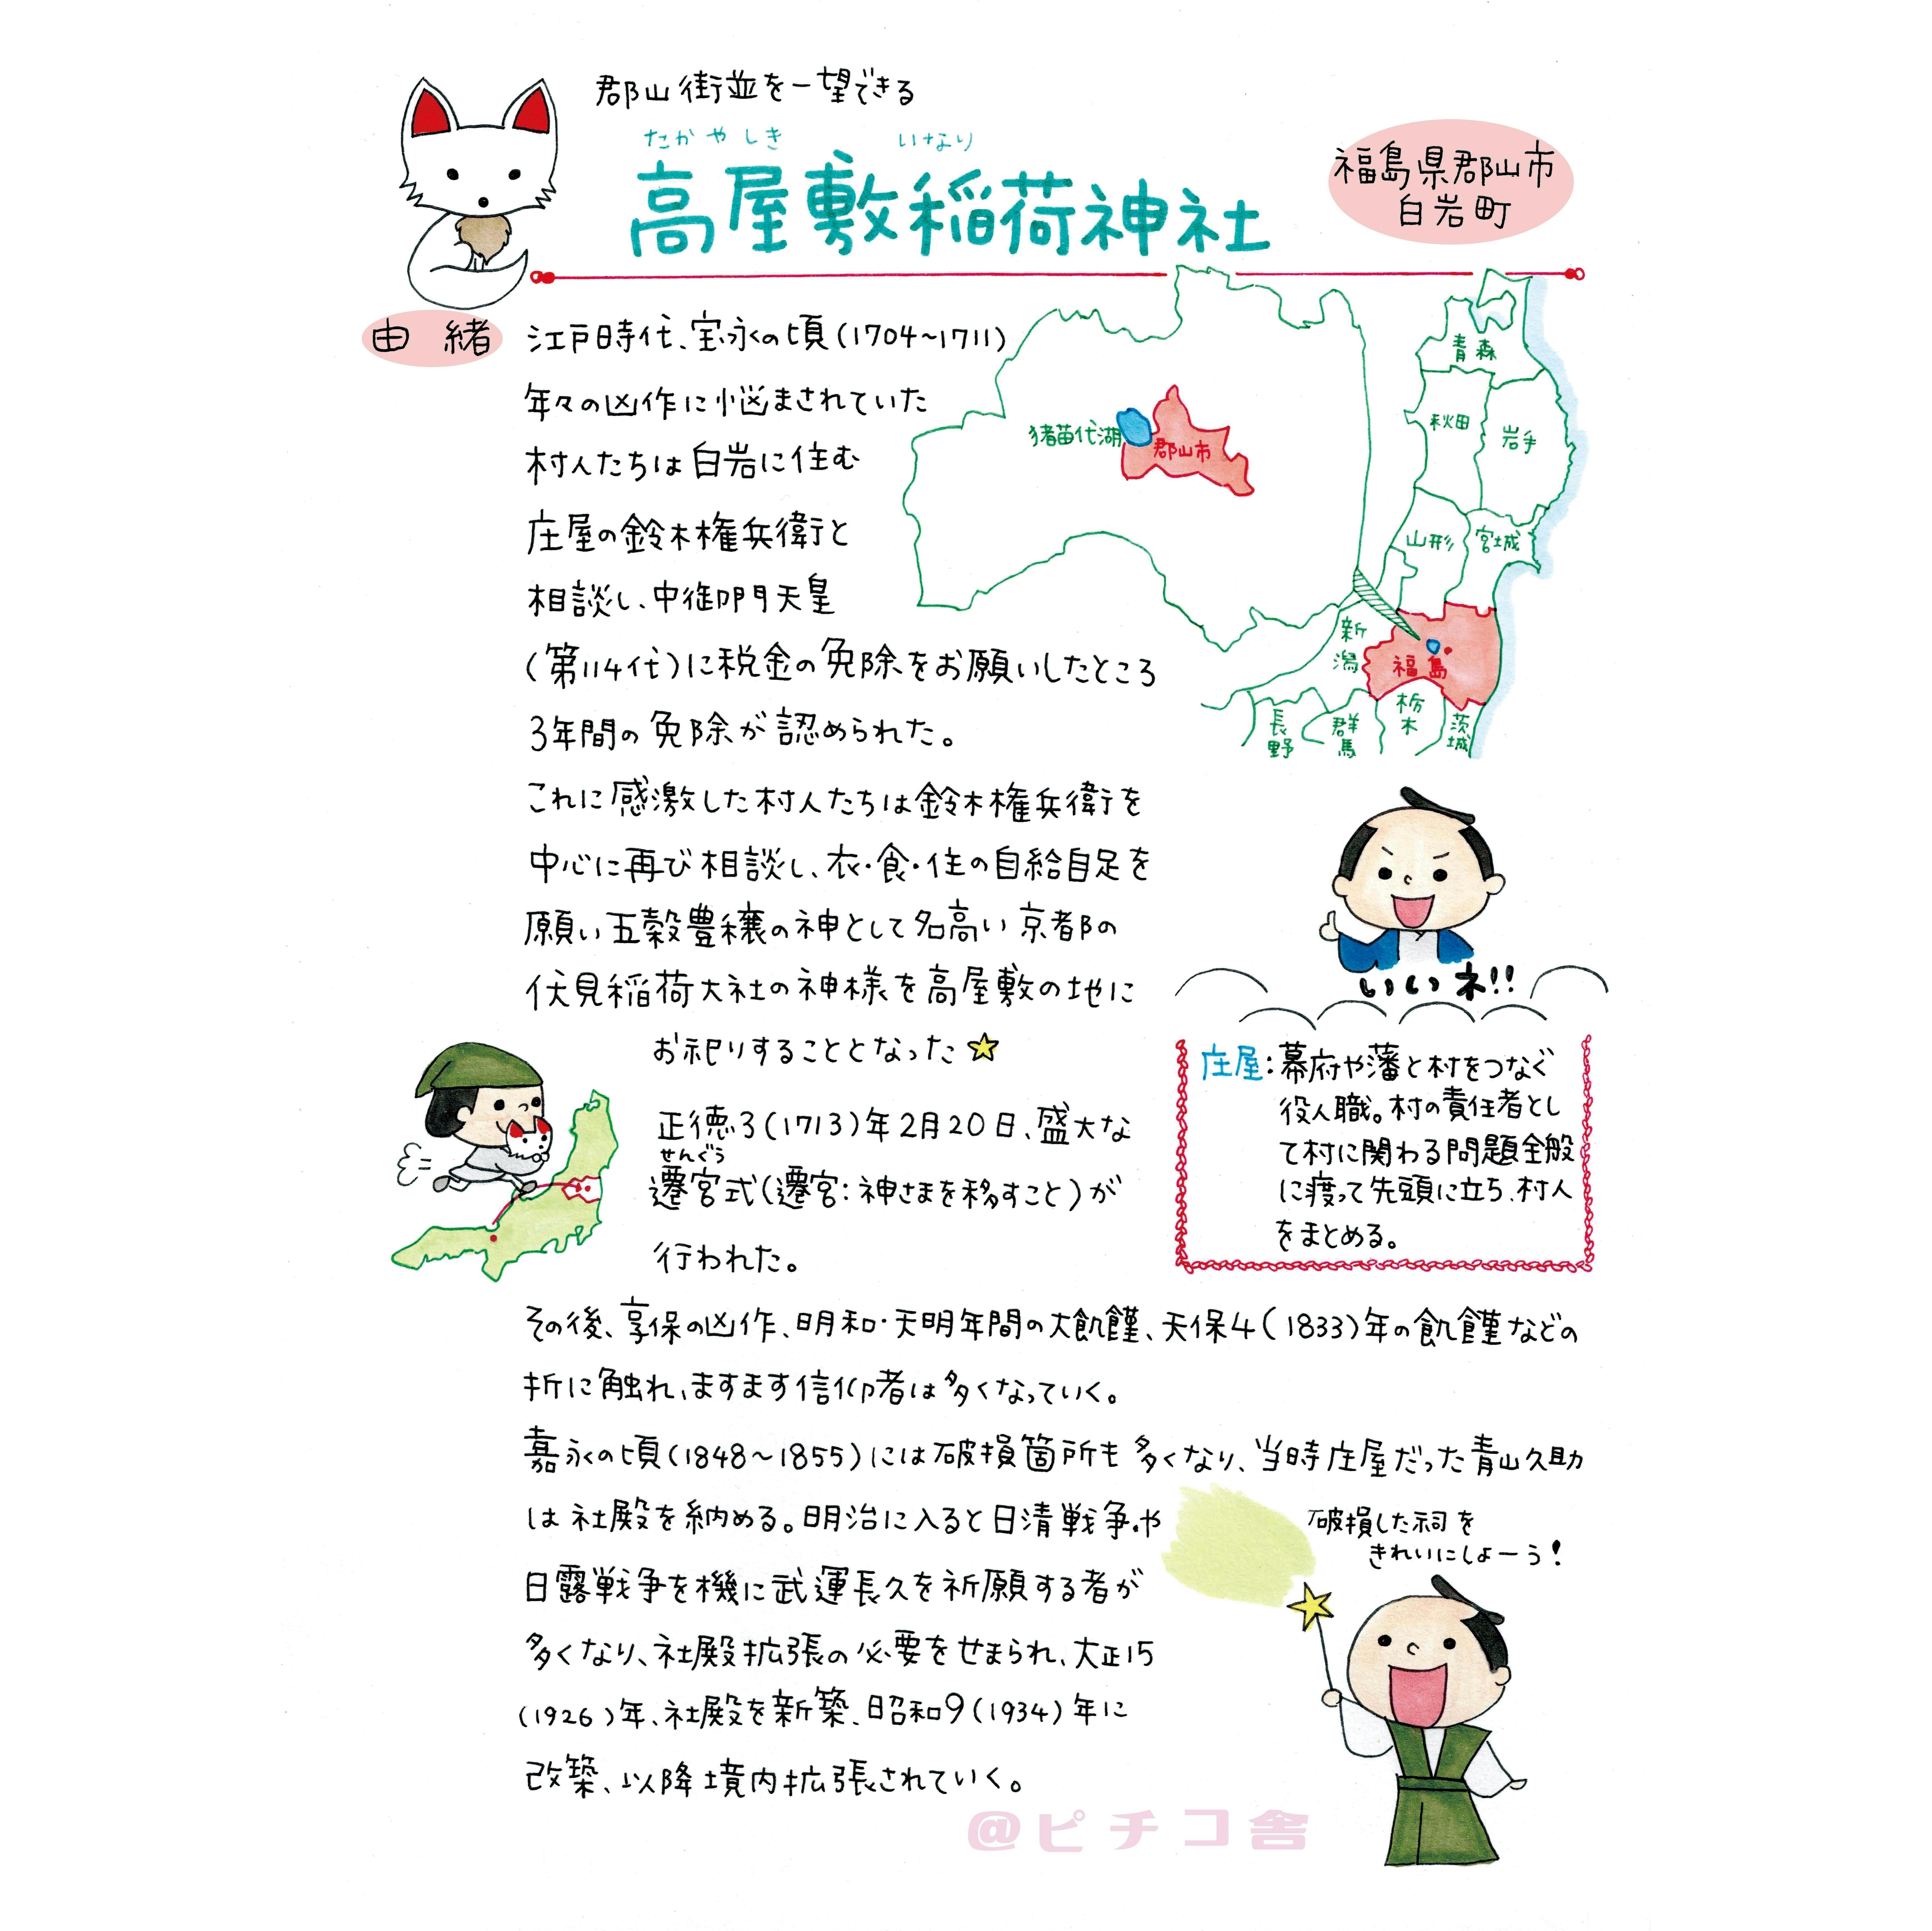 郡山街並を一望できる
たかやしき いなり
高屋敷稲荷神社
福島県郡山市
白岩町
由緒
江戸時代、宝永の頃(1704~1711)
年々の凶作に悩まされていた
村人たちは白岩に住む
庄屋の鈴木権兵衛と
相談し、中御門天皇
(第114代)に税金の免除をお願いしたところ
3年間の免除が認められた。
これに感激した村人たちは鈴木権兵衛を
中心に再び相談し、衣・食・住の自給自足を
願い五穀豊穣の神として名高い京都の
伏見稲荷大社の神様を高屋敷の地に
お祀りすることとなった☆
正徳3(1713)年2月20日、盛大な
せんぐう
遷宮式(遷宮:神さまを移すこと)が
行われた。
その後、享保の凶作、明和・天明年間の大飢饉、天保4(1833)年の飢饉などの
折に触れ、ますます信仰者は多くなっていく。
嘉永の頃(1848~1855)には破損箇所も多くなり、当時庄屋だった青山久助
は社殿を納める。明治に入ると日清戦争や
日露戦争を機に武運長久を祈願する者が
多くなり、社殿拡張の必要をせまられ、大正15
(1926)年、社殿を新築、昭和9(1934)年に
改築、以降境内拡張されていく。
猪苗代湖
郡山市
青森
秋田
岩手
山形
宮城
新潟
福島
長野
群馬
栃木
茨城
いいネ!!
庄屋:幕府や藩と村をつなぐ
役人職。村の責任者とし
て村に関わる問題全般
に渡って先頭に立ち、村人
をまとめる。
破損した祠を
きれいにしよーう!
@ピチコ舎